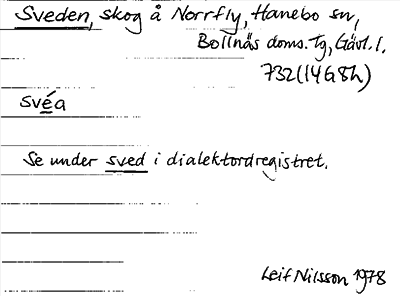 Sveden, skog å Norrfly, Hanebo sn,
Bollnäs doms. Tg, Gävl. l.
732(14G8h)
svéa
Se under sved i dialektordregistret.
Leif Nilsson 1978